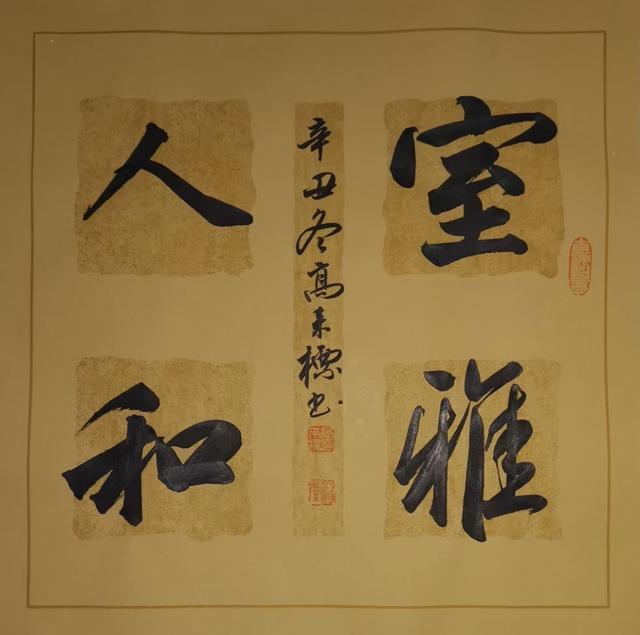 室雅
人和
辛丑冬高来標书